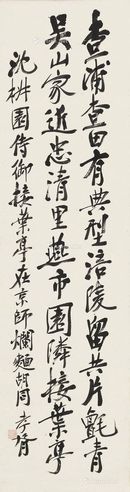 查浦查田有典型涪陵留共片氈青
吴山家近忠清里燕市園隣接葉亭
沈椒園侍御接葉亭在京師爛麵胡同 孝胥